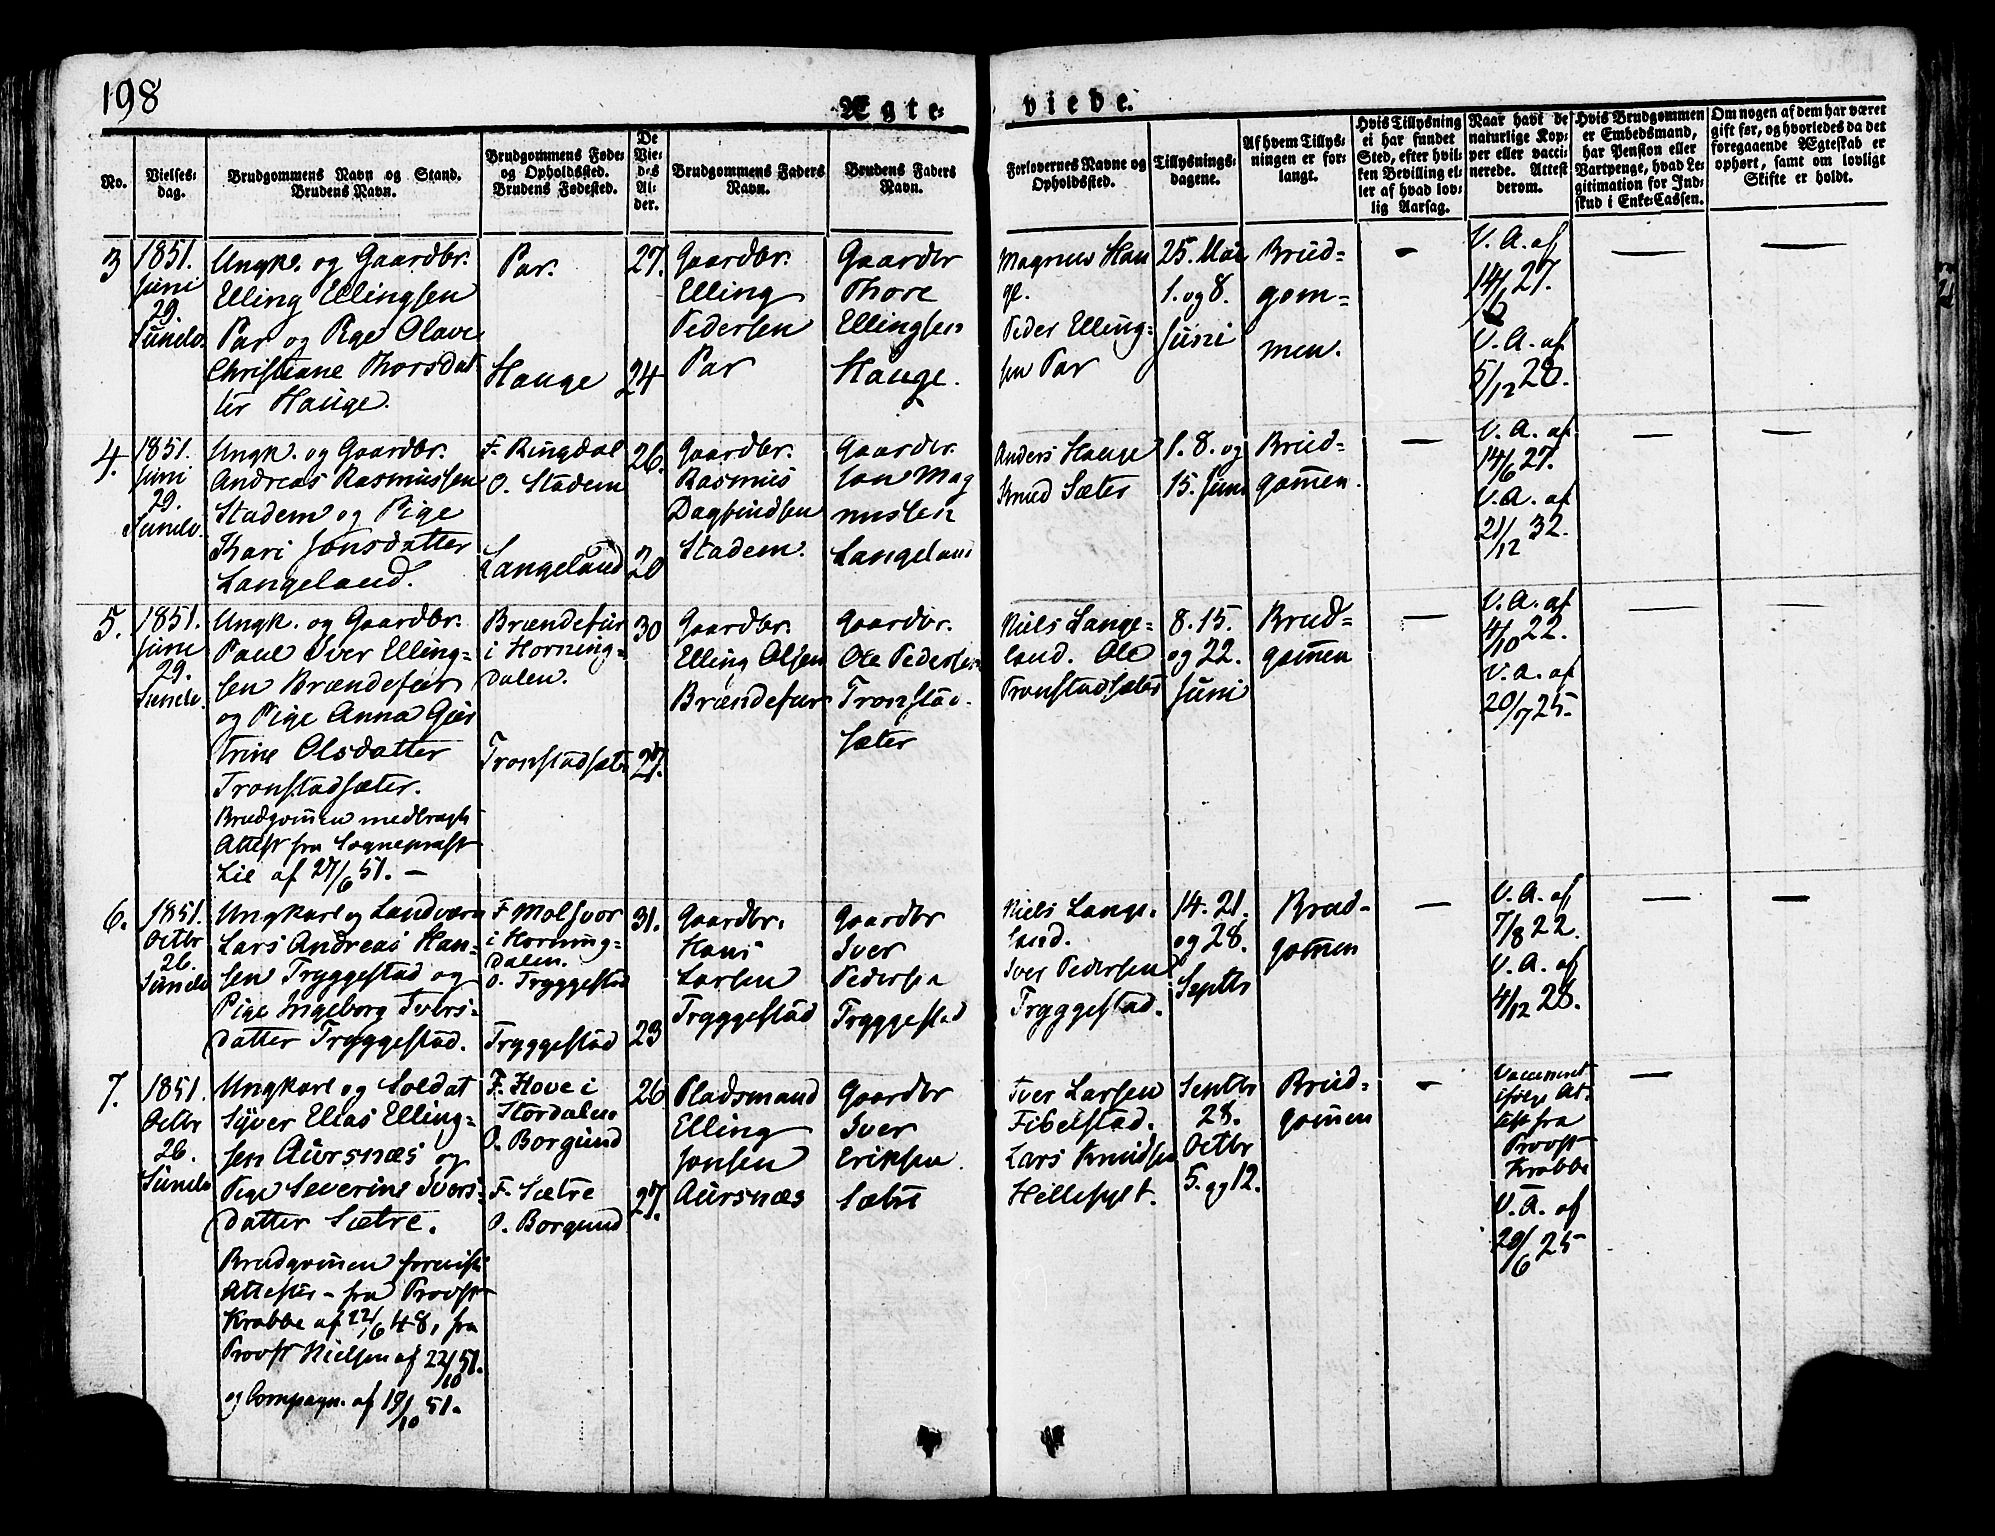 198
Ægte-
viede.
No.
Vielses-
dag.
Brudgommens Navn og Stand.
Brudens Navn.
Brudgommens Føde-
og Opholdssted.
Brudens Fødested.
De
Vie-
des
Al-
der.
Brudgommens Faders
Navn.
Brudens Faders
Navn.
Forlovernes Navne og
Opholdssted.
Tillysnings-
dagene.
Af hvem Tillys-
ningen er for-
langt.
Hvis Tillysning
ei har fundet
Sted, efter hvil-
ken Bevilling el-
ler af hvad lov-
lig Aarsag.
Naar havt de
naturlige Kop-
per eller vacci-
nerede. Attest
derom.
Hvis Brudgommen
er Embedsmand,
har Pension eller
Vartpenge, hvad Le-
gitimation for Ind-
skud i Enke-Cassen.
Om nogen af dem har været
gift før, og hvorledes da det
foregaaende Ægteskab er
ophørt, samt om lovligt
Skifte er holdt.
3
1851.
Juni
29.
Sunelv.
Ungk. og Gaardbr.
Elling Ellingsen
Par og Pige Olave
Christiane Thorsdat
ter Hauge.
Par.
Hauge
27.
24
Gaardbr.
Elling
Pedersen
Par
Gaardbr
Thore
Ellingsen
Hauge.
Magnus Hau
ge.
Peder Elling-
sen Par
25. Mai
1. og 8.
Juni
Brud-
gom-
men.
-
V. A. af
14/6 27.
V. A. af
5/12 28.
—
—
4.
1851.
Juni
29.
Sunelv.
Ungk. og Gaardbr.
Andreas Rasmussen
Stadem og Pige
Kari Jonsdatter
Langeland.
F. Ringdal
O. Stadem
Langeland
26.
20
Gaardbr.
Rasmus
Dagfindsen
Stadem.
Gaardbr.
Jon Mag
nussen
Langeland
Anders Hauge
Knud Sæter
1. 8. og
15. Juni
Brud-
gomen.
—
V. A. af
14/6 27.
V. A. af
21/12 32.
—
—
5.
1851.
Juni
29.
Sunelv.
Ungk. og Gaardbr.
Paul Iver Elling-
sen Brændefur
og Pige Anna Gjer
trine Olsdatter
Tronstadsæter.
Brudgomen medbragte
Attest fra Sognepræst
Lie af 27/6 51. —
Brændefur
i Horning-
dalen.
Tronstadsæter
30
27.
Gaardbr.
Elling Olsen
Brændefur
Gaardbr.
Ole Pedersen
Tronstad-
sæter
Niels Lange-
land. Ole
Tronstadsæter
8. 15.
og 22.
Juni
Brud-
gomen
—
V. A. af
4/10 22.
V. A. af
20/7 25.
—
—
6.
1851.
Octbr
26.
Sunelv
Ungkarl og Landværn
Lars Andreas Han-
sen Tryggestad og
Pige Ingeborg Ivers-
datter Tryggestad.
F. Molsvor
i Horning-
dalen.
O. Tryggestad
Tryggestad
31.
23
Gaardbr.
Hans
Larsen
Tryggestad
Gaardbr
Iver
Pedersen
Tryggestad
Niels Lange-
land.
Iver Pedersen
Tryggestad.
14. 21.
og 28.
Septbr
Brud-
gomen
—
V. A. af
7/8 22.
V. A. af
4/12 28.
—
—
7.
1851.
Octbr
26.
Sunelv
Ungkarl og Soldat
Syver Elias Elling-
sen Aursnæs og
Pige Severine Ivers-
datter Sætre.
Brudgomen foreviste
Attester fra Provst
Krabbe af 22/6 48, fra
Provst Nielsen af 22/10 51.
og Compagn. af 19/10 51.
F. Hove i
Stordalen
O. Borgund
F. Sætre
O. Borgund
26
27.
Pladsmand
Elling
Jonsen
Aursnæs
Gaardbr
Iver
Eriksen.
Sætre
Iver Larsen
Fibelstad.
Lars Knudsen
Hellesylt.
Septbr
28.
Octbr
5. og 12.
Brud-
gomen
-
Vaccineret
ifølge At-
test fra
Provst
Krabbe
V. A. af
20/6 25
—